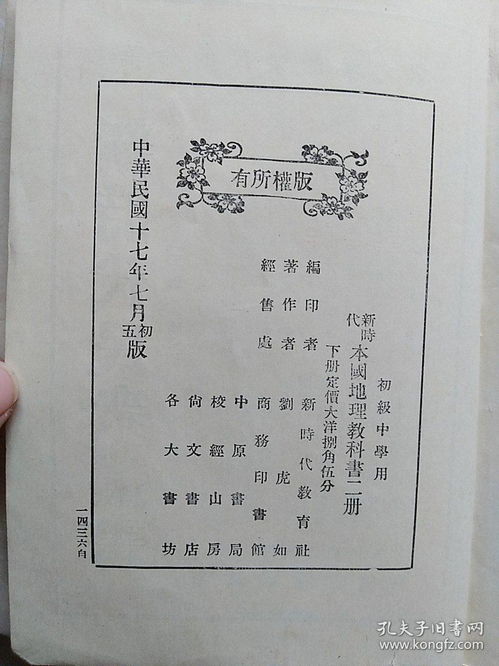 版權所有
初級中學用
新時代本國地理教科書二册
下册定價大洋捌角伍分
編印者 新時代教育社
著作者 劉虎如
經售處 商務印書館
中原書局
校經山房
尙文書店
各大書坊
中華民國十七年七月初五版
一四三六白
孔夫子旧书网
kongfz.com